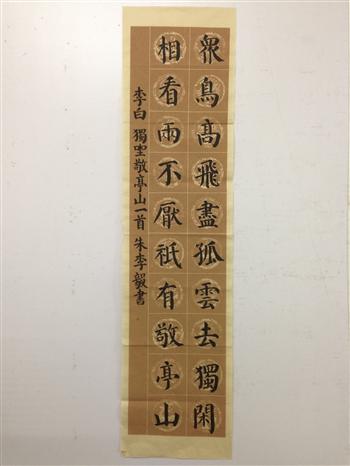 眾鳥高飛盡孤雲去獨閑
相看兩不厭祇有敬亭山
李白 獨坐敬亭山一首 朱李毅書